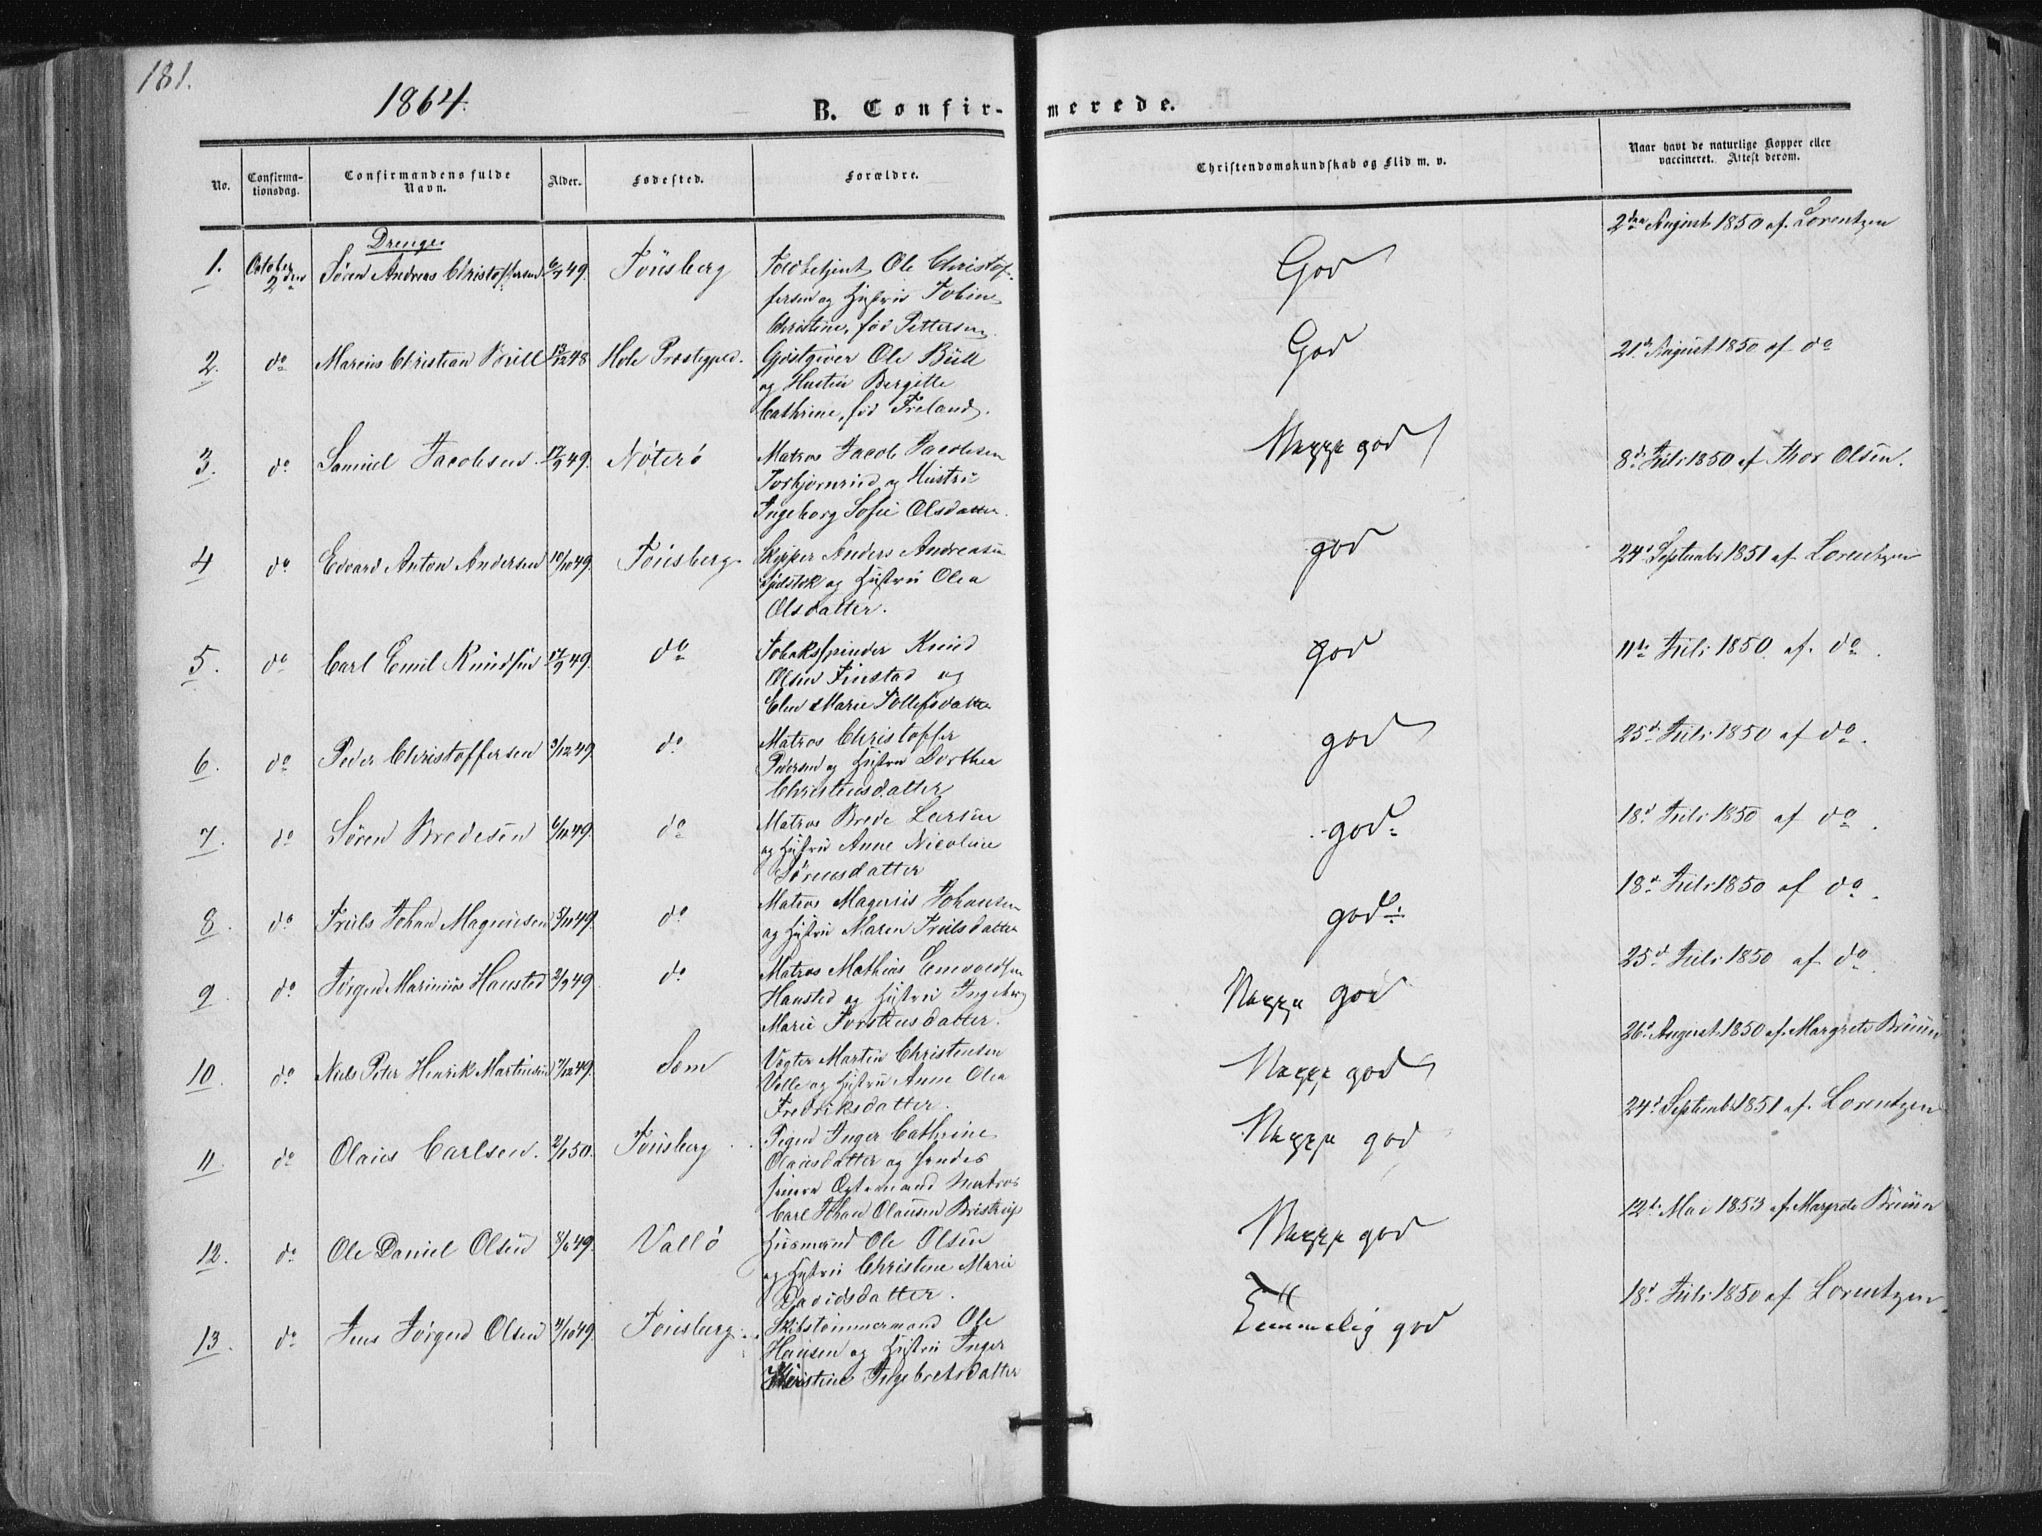 181.
1864.
B. Confir-
merede.
No.
Confirma-
tionsdag.
Confirmandens fulde
Navn.
Alder.
Fødested.
Forældre.
Christendomskundskab og Flid m. v.
Naar havt de naturlige Kopper eller
vaccineret. Attest derom.
Drenge
1. October 2den Søren Andreas Christoffersen 6/9 49. Tönsberg
Ole Christof-
fersen og Hustru
Christine, fød Pettersen.
God
2den August 1850 af. Lorentzen
2. do Marius Christian Bull 13/12 48 Hole Præstegjeld.
Gjæstgiver Ole Büll
og Hustru Bergitte
Cathrine, fød Freland.
God
21de August 1850 af do
3. do Samuel Jacobsen 17/9 49. Nöterö
Matros Jacob Jacobsen
og Hustru
Ingeborg Sofie Olsdatter.
Meget god
8de Juli 1850 af Thor Olsen.
4 do Edvard Anton Andersen 10/10 49. Tönsberg.
Skipper Anders Andreasen
og Hustru Olea
Olsdatter.
god
24d September 1851 af Lorentzen
5. do Carl Emil Knudsen 17/9 49. do
Tobaksspinder Knud
Olsen Finstad og
Elen Marie Tollefsdatter
god
11te Juli 1850. af. do.
6. do Peder Christoffersen 3/12 49. do
Matros Christoffer
Pedersen og Hustru Dorthea
Christensdatter
god
25d Juli 1850 af do.
7. do Søren Bredesen 6/11 49. do
Matros Brede Larsen
og Hustru Anne Nicoline
Sørensdatter
god
18d Juli 1850 af do.
8. do Truls Johan Magnusen 3/11 49. do
Matros Magnus Johansen
og Hustru Maren Trulsdatter
god
18d Juli 1850 af do.
9. do Jørgen Marinius Hansted 2/9 49. do
Matros Mathias
Hansted og Hustru Ingeborg
Marie Torstensdatter.
Meget god
25d Juli 1850 af do.
10. do Niels Peter Henrik Martinsen 7/12 49. Sem
Vogter Martin Christensen
Valle og Hustru Anne Olea
Fredriksdatter.
Meget god
26d August 1850 af. Margrete Bruun
11. do Olaus Carlsen. 2/1 50. Tönsberg
Pigen Inger Cathrine
Olausdatter og hendes
senere Ægtemand Matros
Carl Johan Olausen Bristrup
Meget god
24d Septemb 1851 af. Lorentzen
12. do Ole Daniel Olsen 8/6 49. Vallö
Husmand Ole Olsen
og Hustru Christine Marie
Davidsdatter.
Meget god
12te Mai 1853 af. Margrete Bruun
13. do Jens Jørgen Olsen 11/10 49. Tönsberg.
Skibstömmermand Ole
Hansen og Hustru Inger
Christine Ingebretsdatter
Temmelig god
18d Juli 1850 af. Lorentzen.